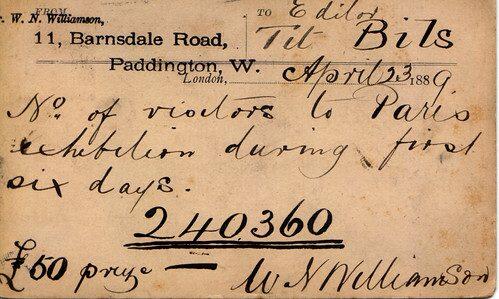 FROM
r. W. N. Williamson,
11, Barnsdale Road,
Paddington, W.
TO Editor
Tit Bits
London, April 23 1889
No. of visitors to Paris
exhibition during first
six days.
240360
£50 prize
W N Williamson